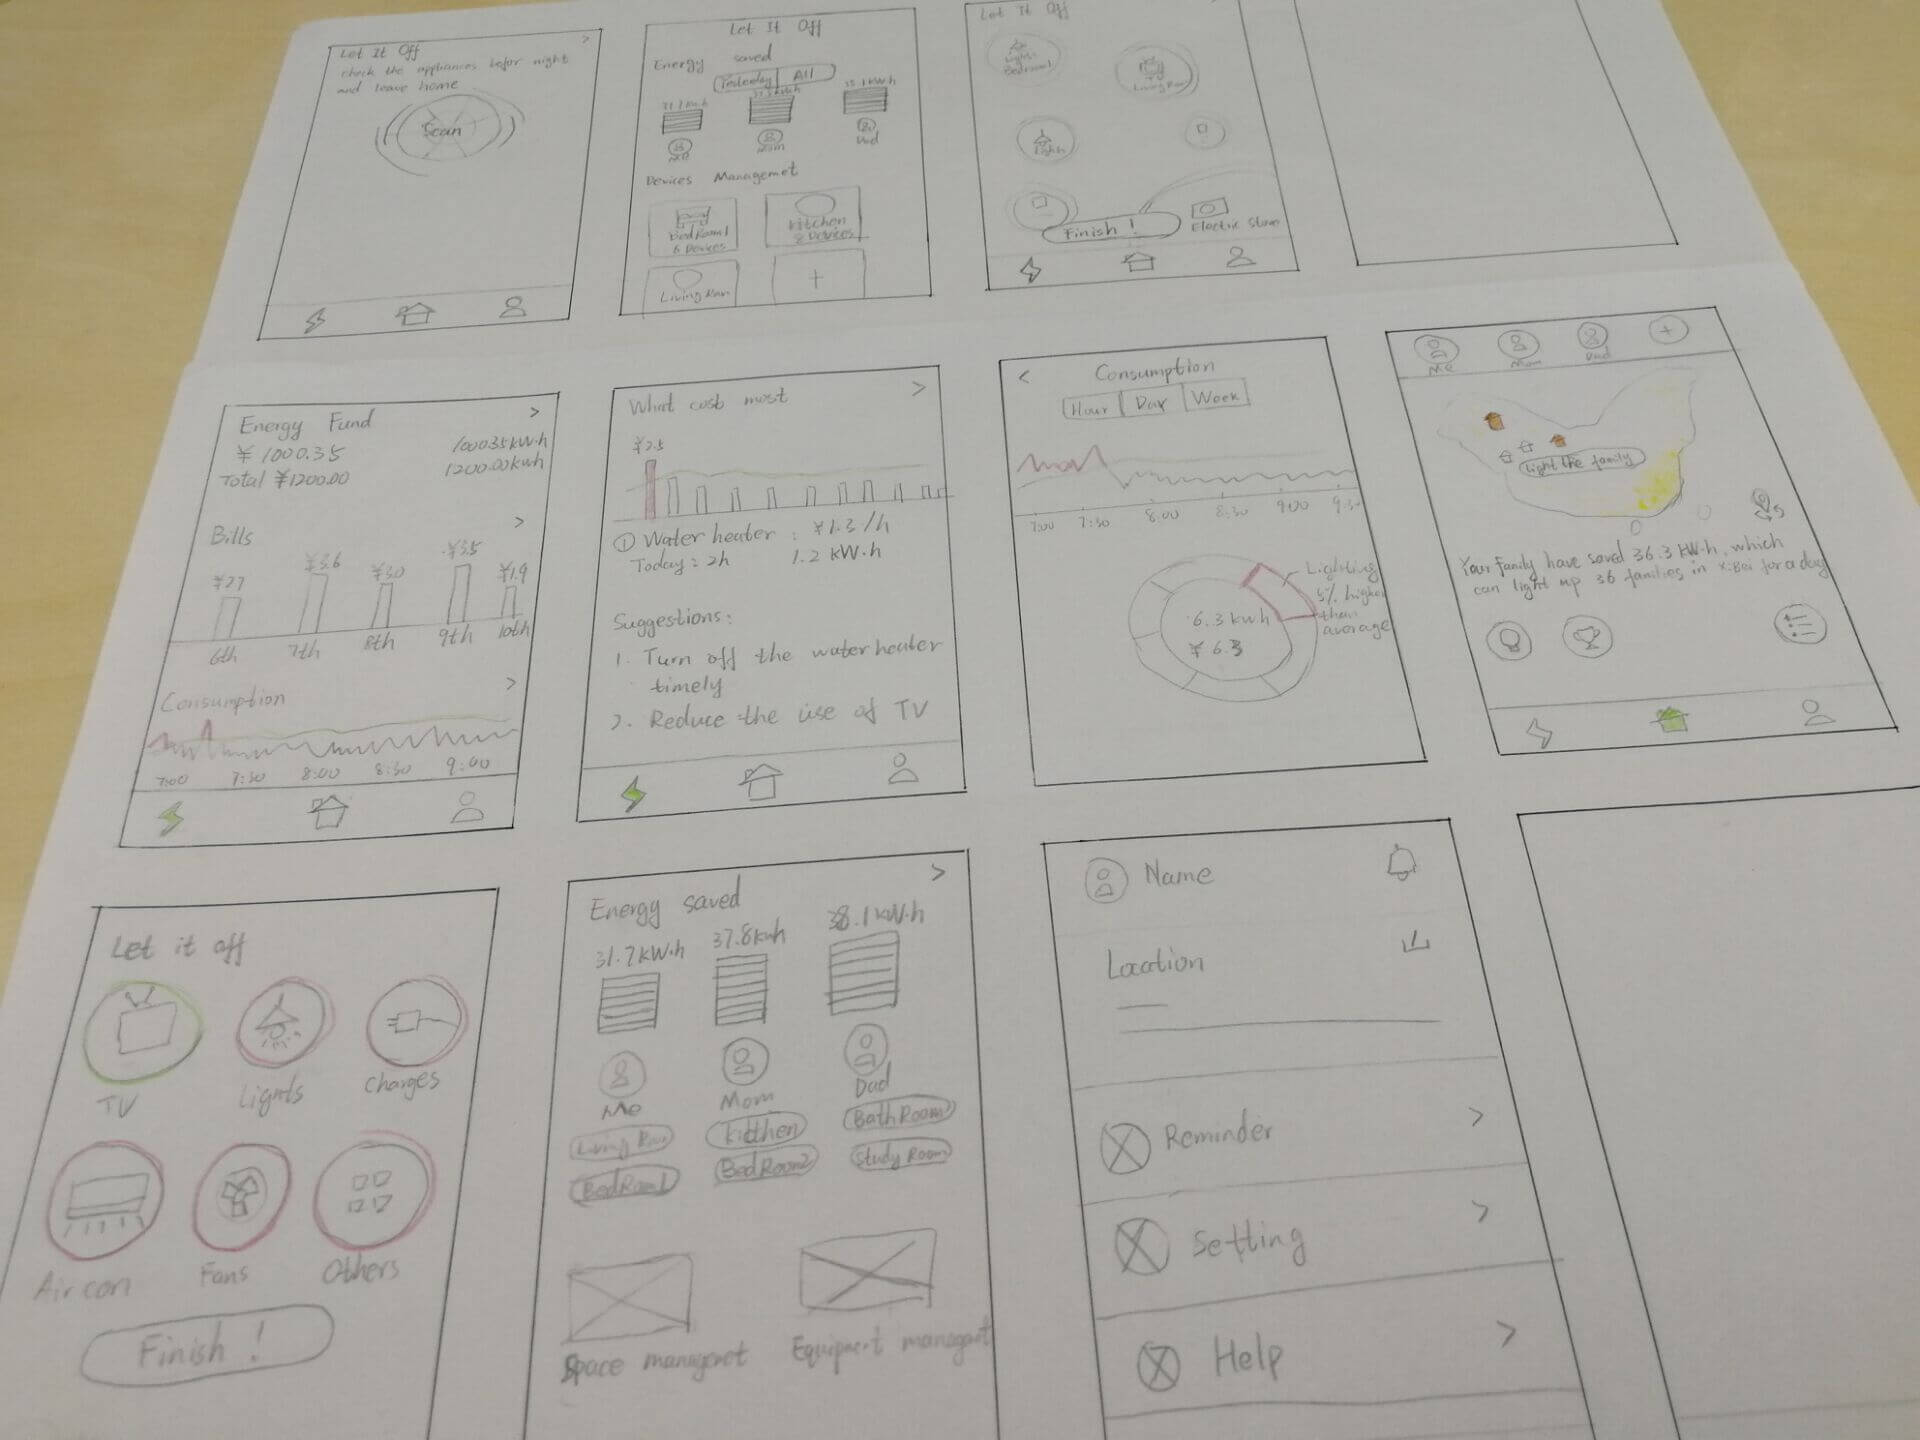 Let It Off
check the appliances befor night
and leave home
Scan
Let It Off
Energy saved
Yesteday All
31.7 kw.h
35.1 kW.h
Me
Mom
Dad
Devices Managemet
BedRoom1
6 Devices
kitchen
8 Devices
Living Rom
+
Let It Off
Lights
BedRoom1
TV
Living Room
Lights
Finish !
Electric Stove
Energy Fund
¥ 1000.35
1000.35 kW.h
Total ¥1200.00
1200.00 kwh
Bills
¥27
¥3.6
¥3.0
¥3.5
¥1.9
6th
7th
8th
9th
10th
Consumption
7:00
7:30
8:00
8:30
9:00
What cost most
¥2.5
① Water heater : ¥1.3/h
Today : 2h 1.2 kW.h
Suggestions:
1. Turn off the water heater
timely
2. Reduce the use of TV
Consumption
Hour Day Week
7:00
7:30
8:00
8:30
9:00
9:30
6.3 kwh
¥ 6.3
Lighting
5% higher
than
average
Me
Mom
Dad
+
light the family
Your Family have saved 36.3 kW.h, which
can light up 36 families in XiBei for a day
Let it off
TV
Lights
Charges
Air con
Fans
Others
Finish !
Energy saved
31.7 kW.h
37.8 kwh
38.1 kW.h
Me
Mom
Dad
Living Rom
kidthen
BathRoom
BedRom1
BedRoom2
Study Room
Space managemet
Equipment managemt
Name
Location
Reminder
Setting
Help